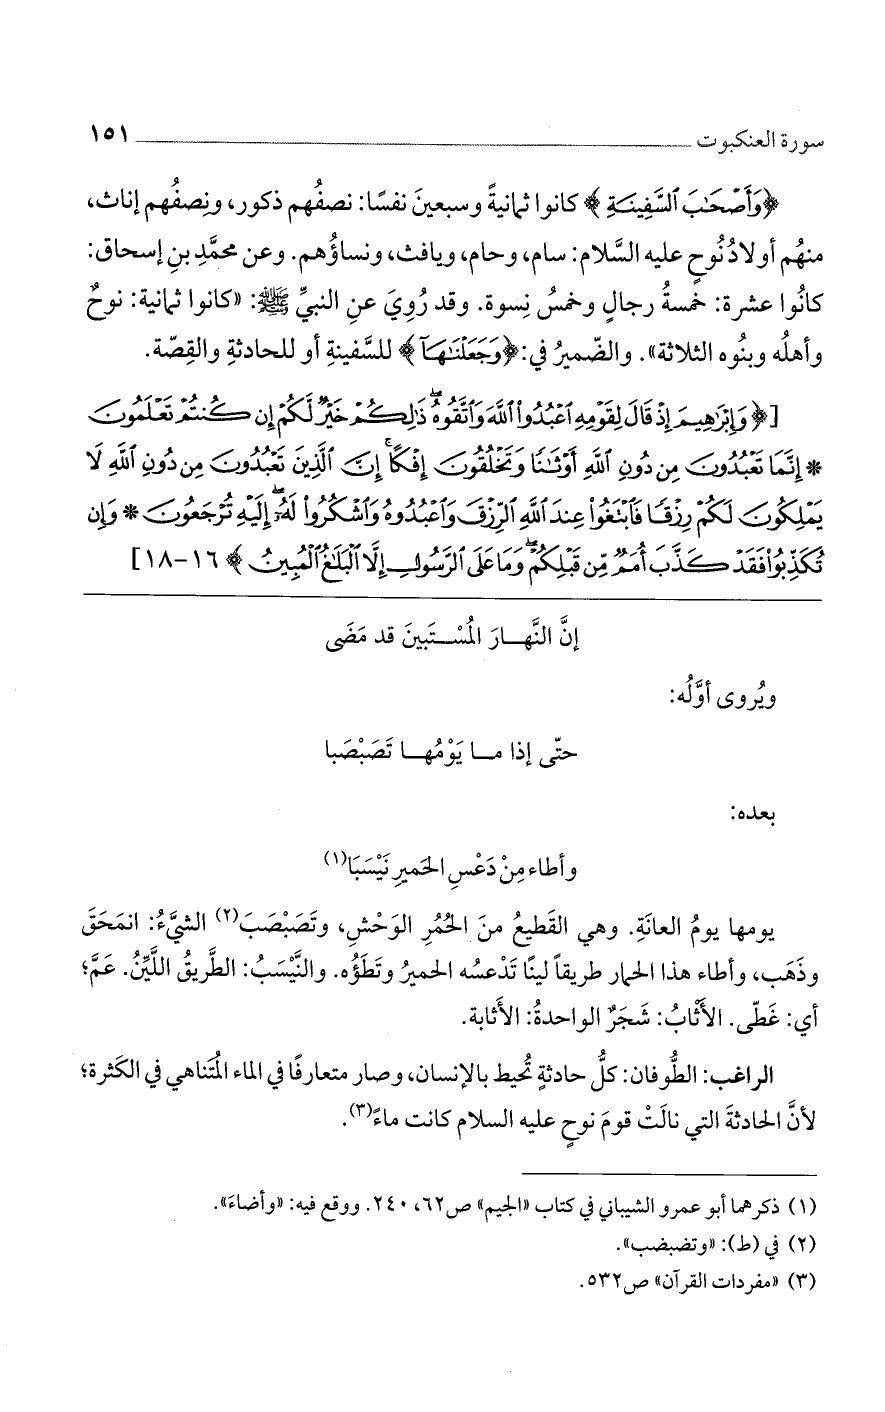 سورة العنكبوت ١٥١
﴿وَأَصْحَٰبَ ٱلسَّفِينَةِ﴾ كانوا ثمانيةً وسبعينَ نفسًا: نصفُهم ذكور، ونِصفُهم إناث،
منهُم أولادُ نُوحٍ عليه السَّلام: سام، وحام، ويافث، ونساؤُهم. وعن محمَّدِ بنِ إسحاق:
كانُوا عشرة: خمسةُ رجالٍ وخمسُ نِسوة. وقد رُوِيَ عنِ النبيِّ ﷺ: «كانوا ثمانية: نوحٌ
وأهلُه وبنُوه الثلاثة». والضَّميرُ في: ﴿وَجَعَلْنَٰهَآ﴾ للسَّفينةِ أو للحادثةِ والقِصّة.
[﴿وَإِبْرَٰهِيمَ إِذْ قَالَ لِقَوْمِهِ ٱعْبُدُوا۟ ٱللَّهَ وَٱتَّقُوهُ ۖ ذَٰلِكُمْ خَيْرٌ لَّكُمْ إِن كُنتُمْ تَعْلَمُونَ
* إِنَّمَا تَعْبُدُونَ مِن دُونِ ٱللَّهِ أَوْثَٰنًا وَتَخْلُقُونَ إِفْكًا ۚ إِنَّ ٱلَّذِينَ تَعْبُدُونَ مِن دُونِ ٱللَّهِ لَا
يَمْلِكُونَ لَكُمْ رِزْقًا فَٱبْتَغُوا۟ عِندَ ٱللَّهِ ٱلرِّزْقَ وَٱعْبُدُوهُ وَٱشْكُرُوا۟ لَهُۥٓ ۖ إِلَيْهِ تُرْجَعُونَ * وَإِن
تُكَذِّبُوا۟ فَقَدْ كَذَّبَ أُمَمٌ مِّن قَبْلِكُمْ ۖ وَمَا عَلَى ٱلرَّسُولِ إِلَّا ٱلْبَلَٰغُ ٱلْمُبِينُ﴾ ١٦-١٨]
إنَّ النَّهـارَ المُسْـتَبينَ قد مَضَى
ويُروى أوَّلُه:
حتّى إذا مـا يَوْمُهـا تَصَبْصَبا
بعده:
وأطاء مِنْ دَعْسِ الحَميرِ نَيْسَبَا(١)
يومها يومُ العانَةِ. وهي القَطيعُ منَ الحُمُرِ الوَحْشِ، وتَصَبْصَبَ(٢) الشيَّءُ: انمَحَقَ
وذَهَب، وأطاء هذا الحمار طريقاً لينًا تَدْعسُه الحميرُ وتَطَؤُه. والنَّيْسَبُ: الطَّريقُ اللَّيِّنُ. عَمَّ؛
أي: غَطّى. الأَثْابُ: شَجَرٌ الواحدةُ: الأَثابة.
الراغب: الطُّوفان: كلُّ حادثةٍ تُحيط بالإنسان، وصار متعارفًا في الماء المُتناهي في الكَثرة؛
لأنَّ الحادثةَ التي نالَتْ قومَ نوحٍ عليه السلام كانت ماءً(٣).
(١) ذكرهما أبو عمرو الشيباني في كتاب «الجيم» ص٦٢، ٢٤٠. ووقع فيه: «وأضاءَ».
(٢) في (ط): «وتضبضب».
(٣) «مفردات القرآن» ص٥٣٢.